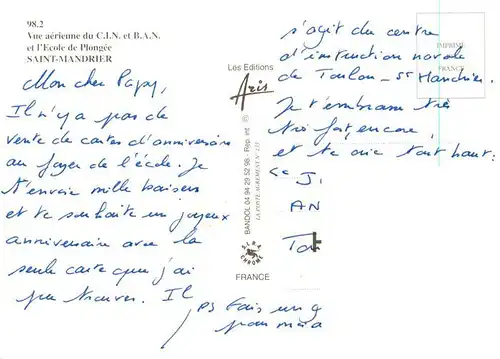 98.2
Vue aérienne du C.I.N. et B.A.N.
et l'Ecole de Plongée
SAINT-MANDRIER
Mon cher Papy,
Il n'y a pas de
vente de cartes d'anniversaire
au foyer de l'école. Je
t'envoie mille baisers
et te souhaite un joyeux
anniversaire avec la
seule carte que j'ai
pu trouver. Il
s'agit du centre
d'instruction navale
de Toulon - St Mandrier.
Je t'embrasse très
très fort, encore,
et te crie tout haut:
"J.
AN
PS Fais un g
pour ma
Les Editions
Aris
BANDOL 04 94 29 52 98 - Rep. int ©
LA POSTE AGREMENT N°
CHROME
FRANCE
IMPRIME
FRANCE